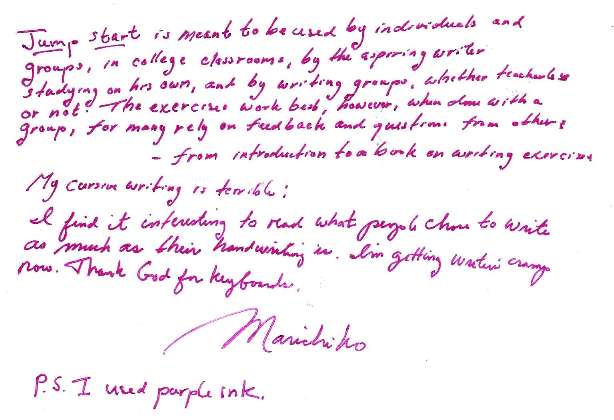 Jump start is meant to be used by individuals and
groups, in college classrooms, by the aspiring writer
studying on his own, and by writing groups, whether teacherless
or not. The exercises work best, however, when done with a
group, for many rely on feedback and questions from others
- from introduction to a book on writing exercises
My cursive writing is terrible!
I find it interesting to read what people chose to write
as much as their handwriting is. I'm getting writers cramp
now. Thank God for keyboards.
Marichiko
P.S. I used purple ink.